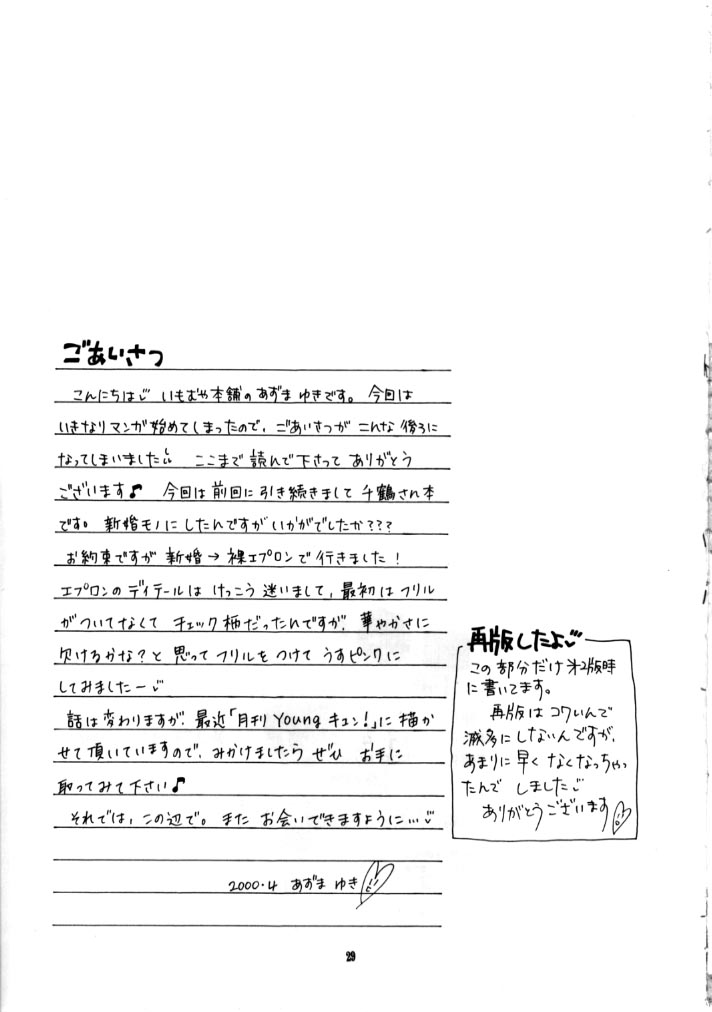 ごあいさつ
こんにちは♡ いもむや本舗のあずまゆきです。今回は
いきなりマンガ始めてしまったので、ごあいさつがこんな後ろに
なってしまいました ここまで読んで下さってありがとう
ございます♪ 今回は前回に引き続きまして千鶴さん本
です。新婚モノにしたんですがいかがでしたか???
お約束ですが新婚→裸エプロンで行きました!
エプロンのディテールはけっこう迷いまして、最初はフリル
がついてなくてチェック柄だったんですが、華やかさに
欠けるかな?と思ってフリルをつけてうすピンクに
してみましたー♡
話は変わりますが、最近「月刊Youngキュン!」に描か
せて頂いていますので、みかけましたらぜひお手に
取ってみて下さい♪
それでは、この辺で。またお会いできますように…♡
2000.4 あずまゆき
再版したよ♡
この部分だけ第2版時
に書いてます。
再版はコワいんで
滅多にしないんですが、
あまりに早くなくなっちゃっ
たんでしました♡
ありがとうございます
29